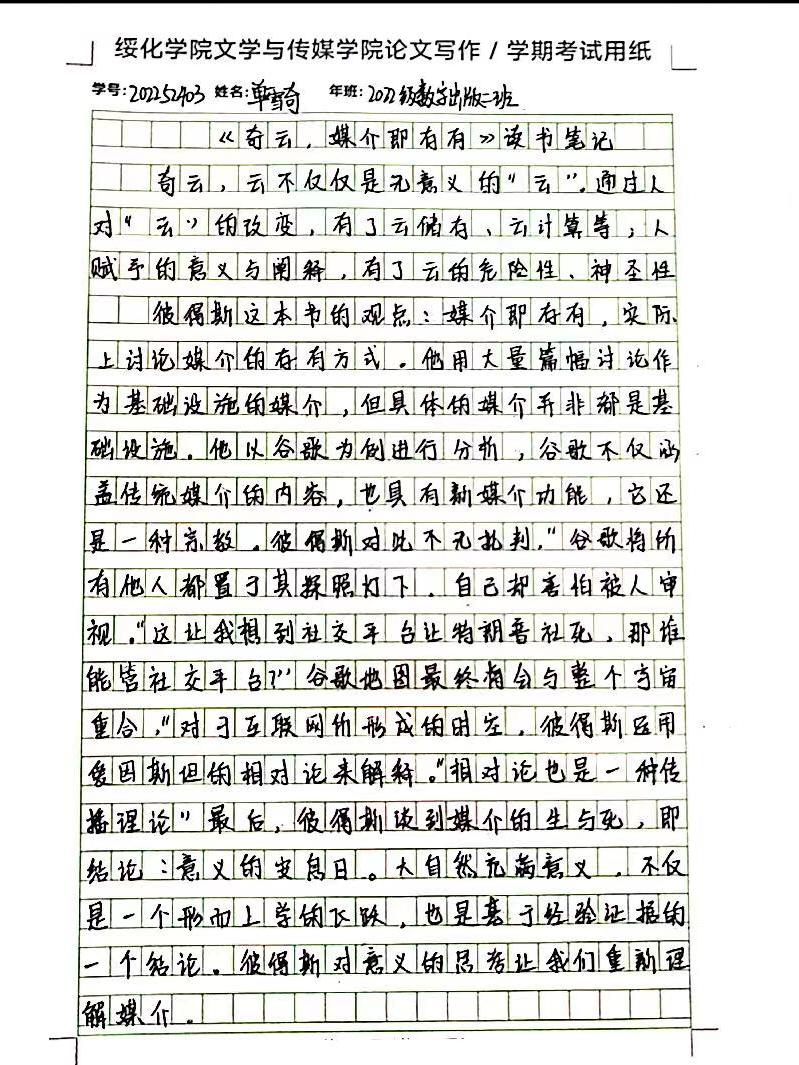 绥化学院文学与传媒学院论文写作 / 学期考试用纸
学号:202252403 姓名:单雪奇 年班:2022级数字出版二班
《奇云,媒介即存有》读书笔记
奇云,云不仅仅是无意义的“云”.通过人
对“云”的改变,有了云储存、云计算等;人
赋予的意义与阐释,有了云的危险性、神圣性
彼得斯这本书的观点:媒介即存有,实际
上讨论媒介的存有方式。他用大量篇幅讨论作
为基础设施的媒介,但具体的媒介并非都是基
础设施。他以谷歌为例进行分析,谷歌不仅涵
盖传统媒介的内容,也具有新媒介功能,它还
是一种宗教。彼得斯对此不无批判,“谷歌将所
有他人都置于其探照灯下,自己却害怕被人审
视。”这让我想到社交平台让特朗普社死,那谁
能管社交平台?“谷歌地图最终将会与整个宇宙
重合,”对于互联网所形成的时空,彼得斯运用
爱因斯但的相对论来解释。“相对论也是一种传
播理论”最后,彼得斯谈到媒介的生与死,即
结论:意义的安息日。大自然充满意义,不仅
是一个形而上学的飞跃,也是基于经验证据的
一个结论。彼得斯对意义的思考让我们重新理
解媒介。